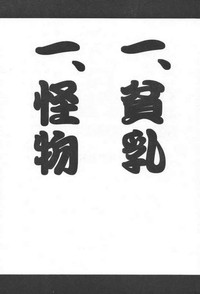 一、貧乳
一、怪物